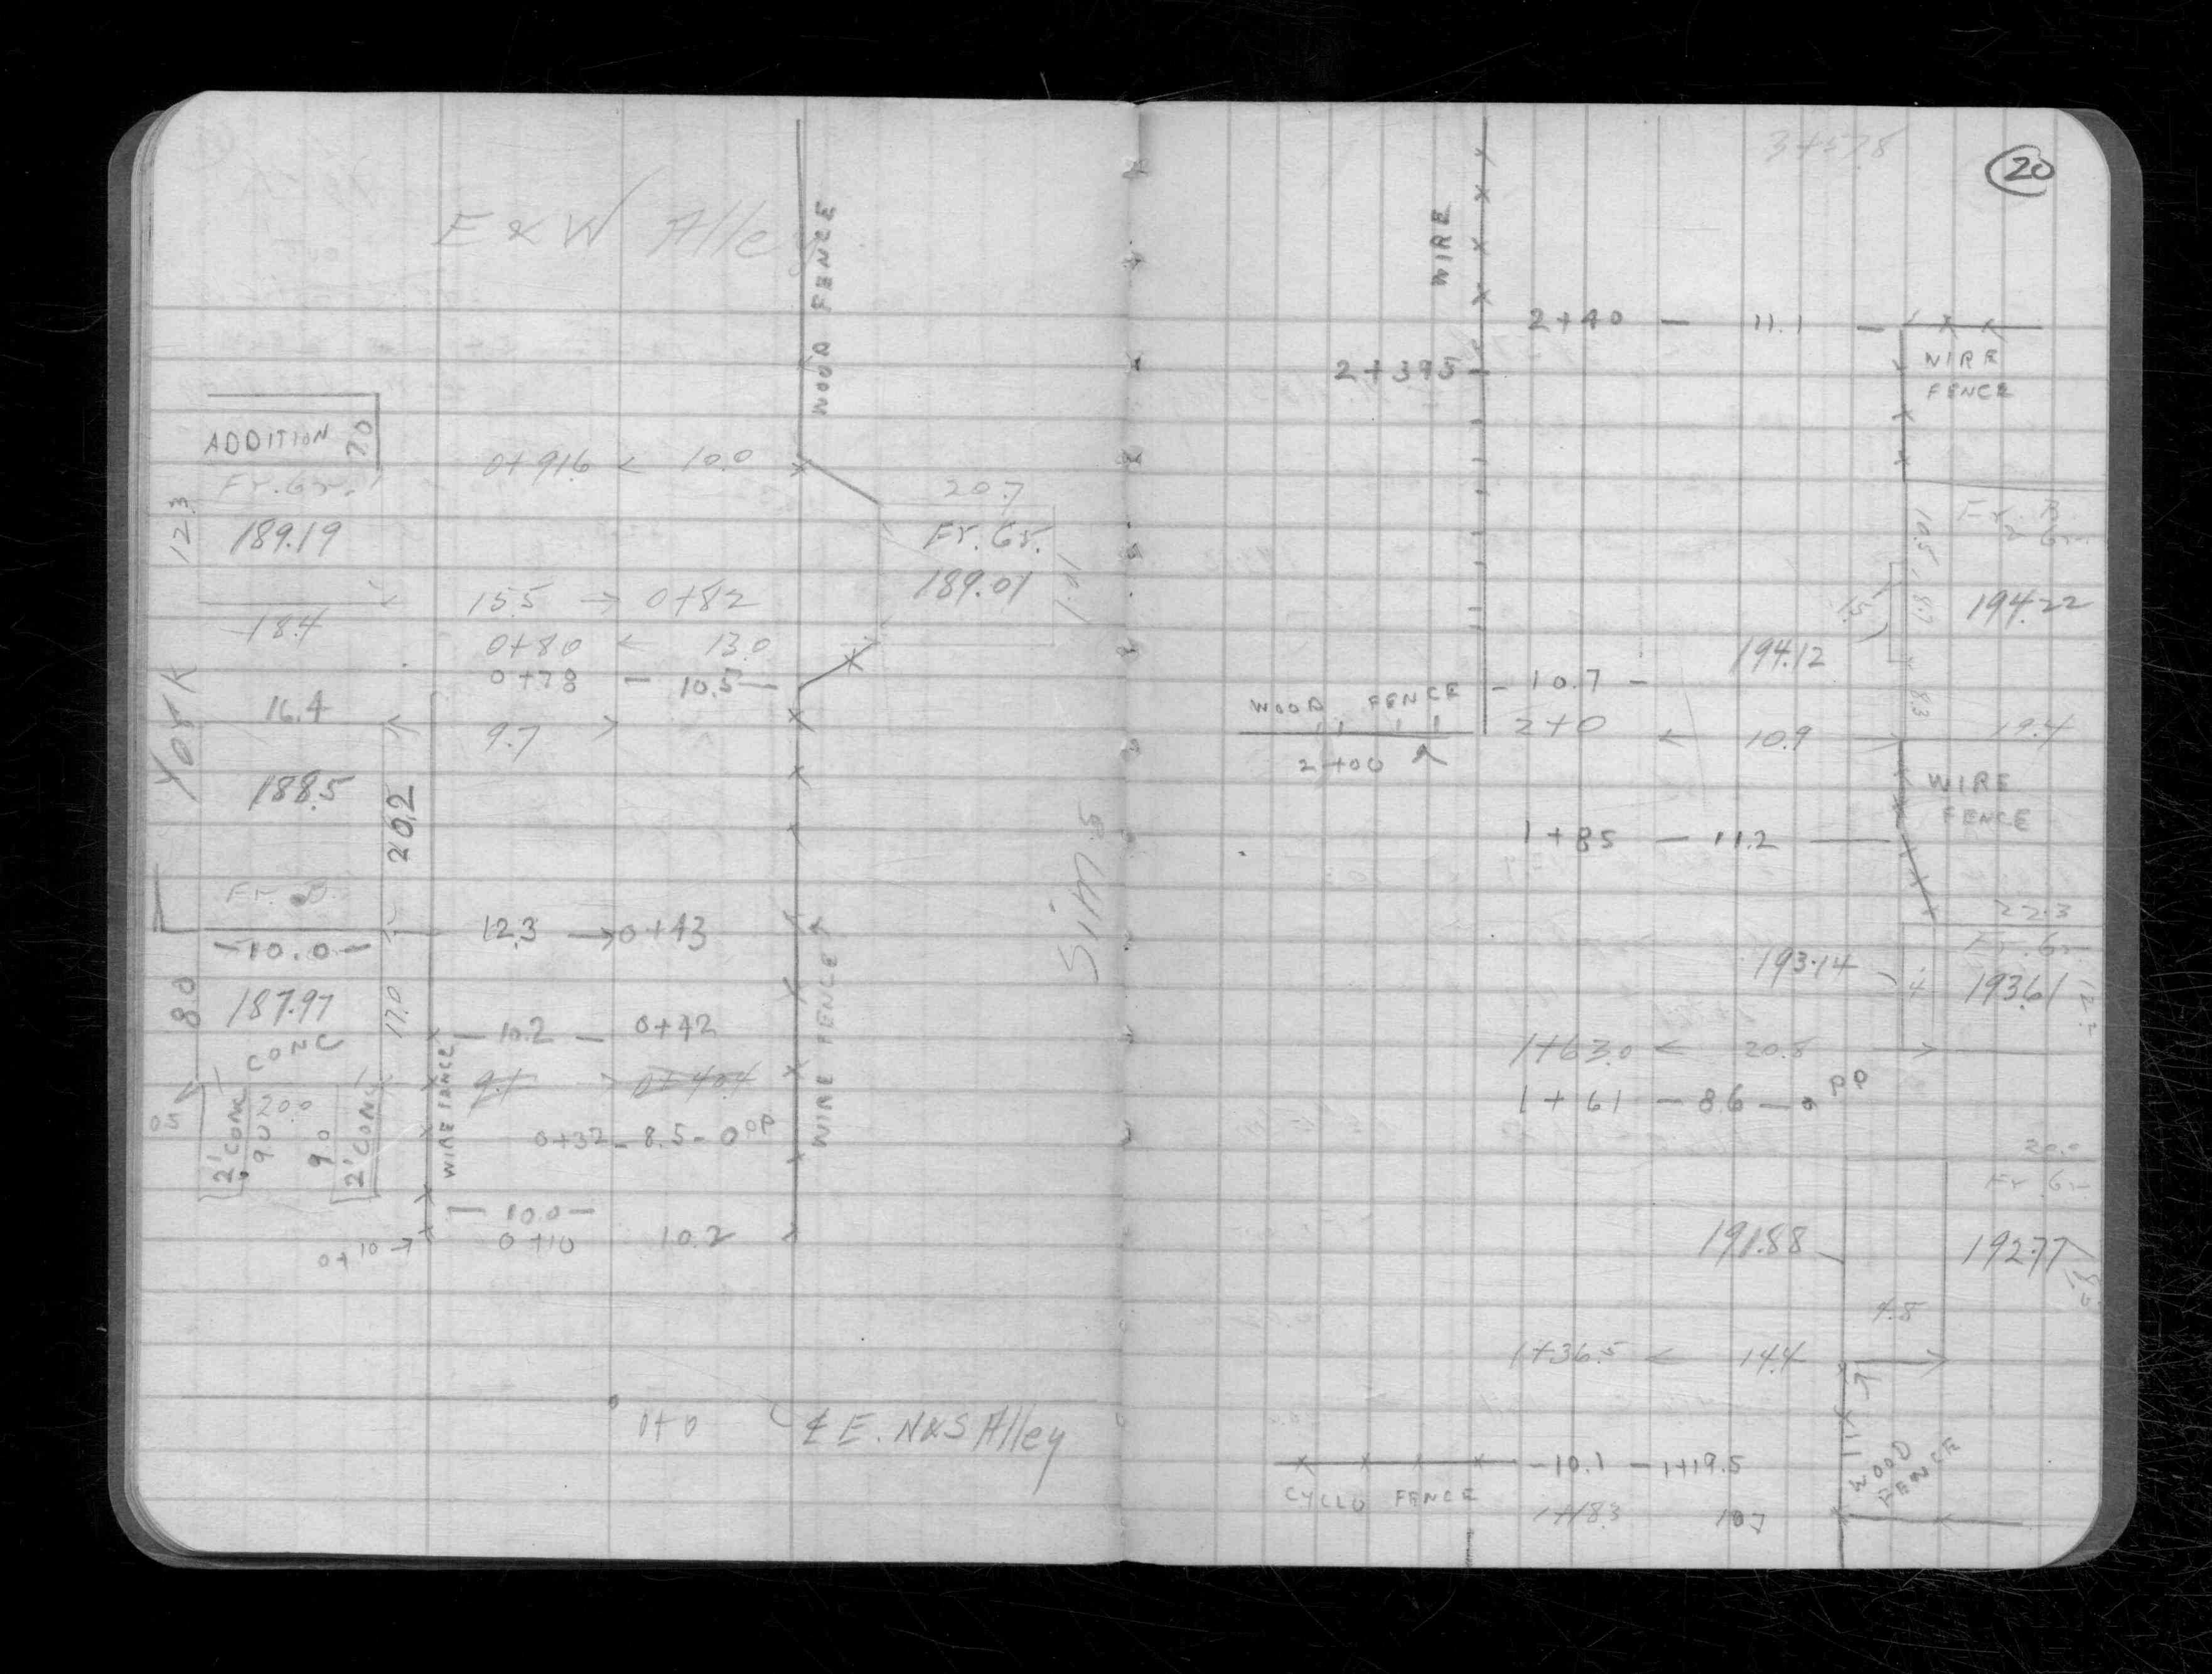 E & W Alley
WOOD FENCE
ADDITION
7.0
Fr. Gr.
0+91.6 < 10.0
20.7
12.3
189.19
Fr. Gr.
189.01
15.5 → 0+82
18.4
0+80 < 13.0
0+78 - 10.5 -
York
16.4
9.7 >
188.5
20.2
Sim.s
Fr. B.
12.3 → 0+43
-10.0-
17.0
8.0
187.97
CONC
- 10.2 - 0+42
WIRE FENCE
9.1 > 0+40.4
20.0
2' CONC
9.0
9.0
2' CONC
0+32 - 8.5 - O OP
WIRE FENCE
10.0 -
0+10 →
0+10 10.2
0+0
℄ E. N&S Alley
3+57.8
20
WIRE
2+40 - 11.1 -
2+39.5
WIRE
FENCE
10.5
Fr. B.
Gr.
194.22
15
8.7
194.12
WOOD FENCE
- 10.7 -
8.3
2+0 ← 10.9
19.4
2+00
WIRE
FENCE
1+85 - 11.2
22.3
Fr. Gr.
193.14
4
193.61
12.2
1+63.0 < 20.8 >
1+61 - 8.6 - PP
20.0
Fr. Gr.
191.88
192.77
18.0
4.8
1+36.5 < 14.4
- 10.1 - 1+19.5
CYCLO FENCE
WOOD
FENCE
1+18.3 10.7